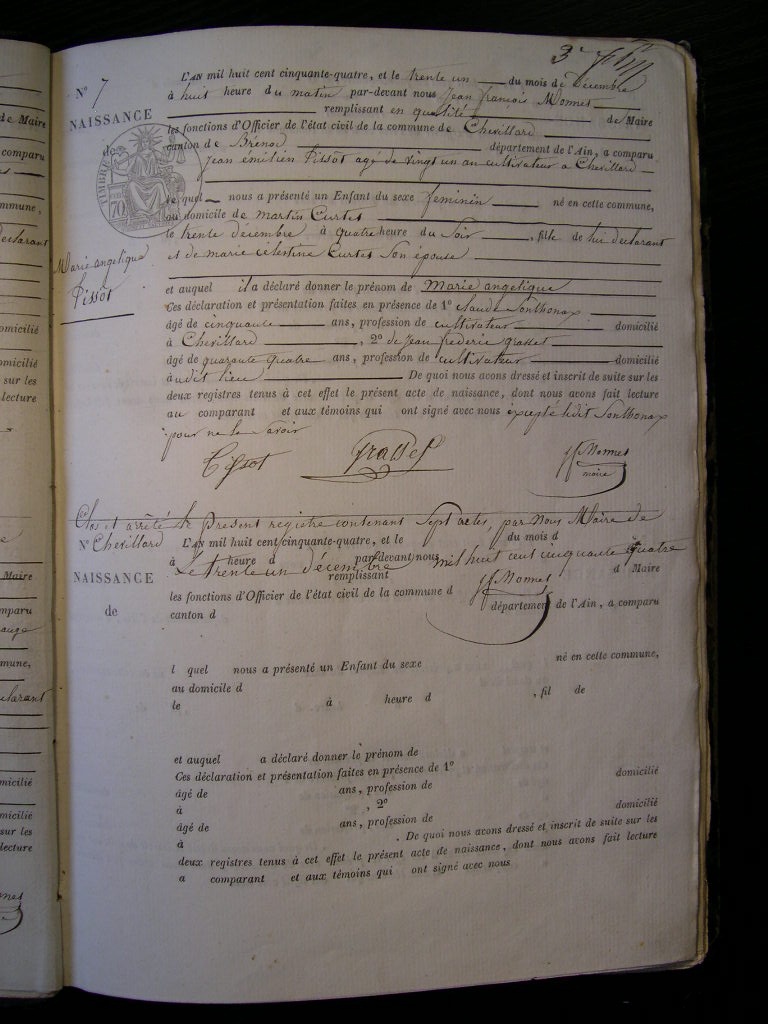 3e f
N° 7
NAISSANCE
de
Marie angélique
Pissot
L'AN mil huit cent cinquante-quatre, et le trente un du mois de décembre
à huit heure du matin par-devant nous Jean françois Monnet
remplissant en qualité de Maire
les fonctions d'Officier de l'état civil de la commune de Chevillard
canton de Brenod département de l'Ain, a comparu
Jean émilien Pissot agé de vingt un an cultivateur a Chevillard
lequel nous a présenté un Enfant du sexe feminin né en cette commune,
au domicile de martin Curtet
le trente décembre à quatre heure du Soir, fille de lui declarant
et de marie célestine Curtet Son épouse
et auquel il a déclaré donner le prénom de Marie angelique
Ces déclaration et présentation faites en présence de 1° Claude Sonthonax
âgé de cinquante ans, profession de cultivateur domicilié
à Chevillard, 2° de Jean frederic grasset
âgé de quarante quatre ans, profession de cultivateur domicilié
audit lieu De quoi nous avons dressé et inscrit de suite sur les
deux registres tenus à cet effet le présent acte de naissance, dont nous avons fait lecture
au comparant et aux témoins qui ont signé avec nous excepté ledit Sonthonax
pour ne le savoir
Pissot Grasset Jf Monnet
maire
Clos et arrêté le present registre contenant Sept actes, par Nous Maire de
Chevillard
Le trente un décembre mil huit cent cinquante quatre
Jf Monnet
N°
NAISSANCE
de
L'AN mil huit cent cinquante-quatre, et le du mois d
à heure d par-devant nous
remplissant d Maire
les fonctions d'Officier de l'état civil de la commune d
canton d département de l'Ain, a comparu
l quel nous a présenté un Enfant du sexe né en cette commune,
au domicile d
le à heure d , fil de
et auquel a déclaré donner le prénom de
Ces déclaration et présentation faites en présence de 1°
âgé de ans, profession de domicilié
à , 2°
âgé de ans, profession de domicilié
à . De quoi nous avons dressé et inscrit de suite sur les
deux registres tenus à cet effet le présent acte de naissance, dont nous avons fait lecture
a comparant et aux témoins qui ont signé avec nous